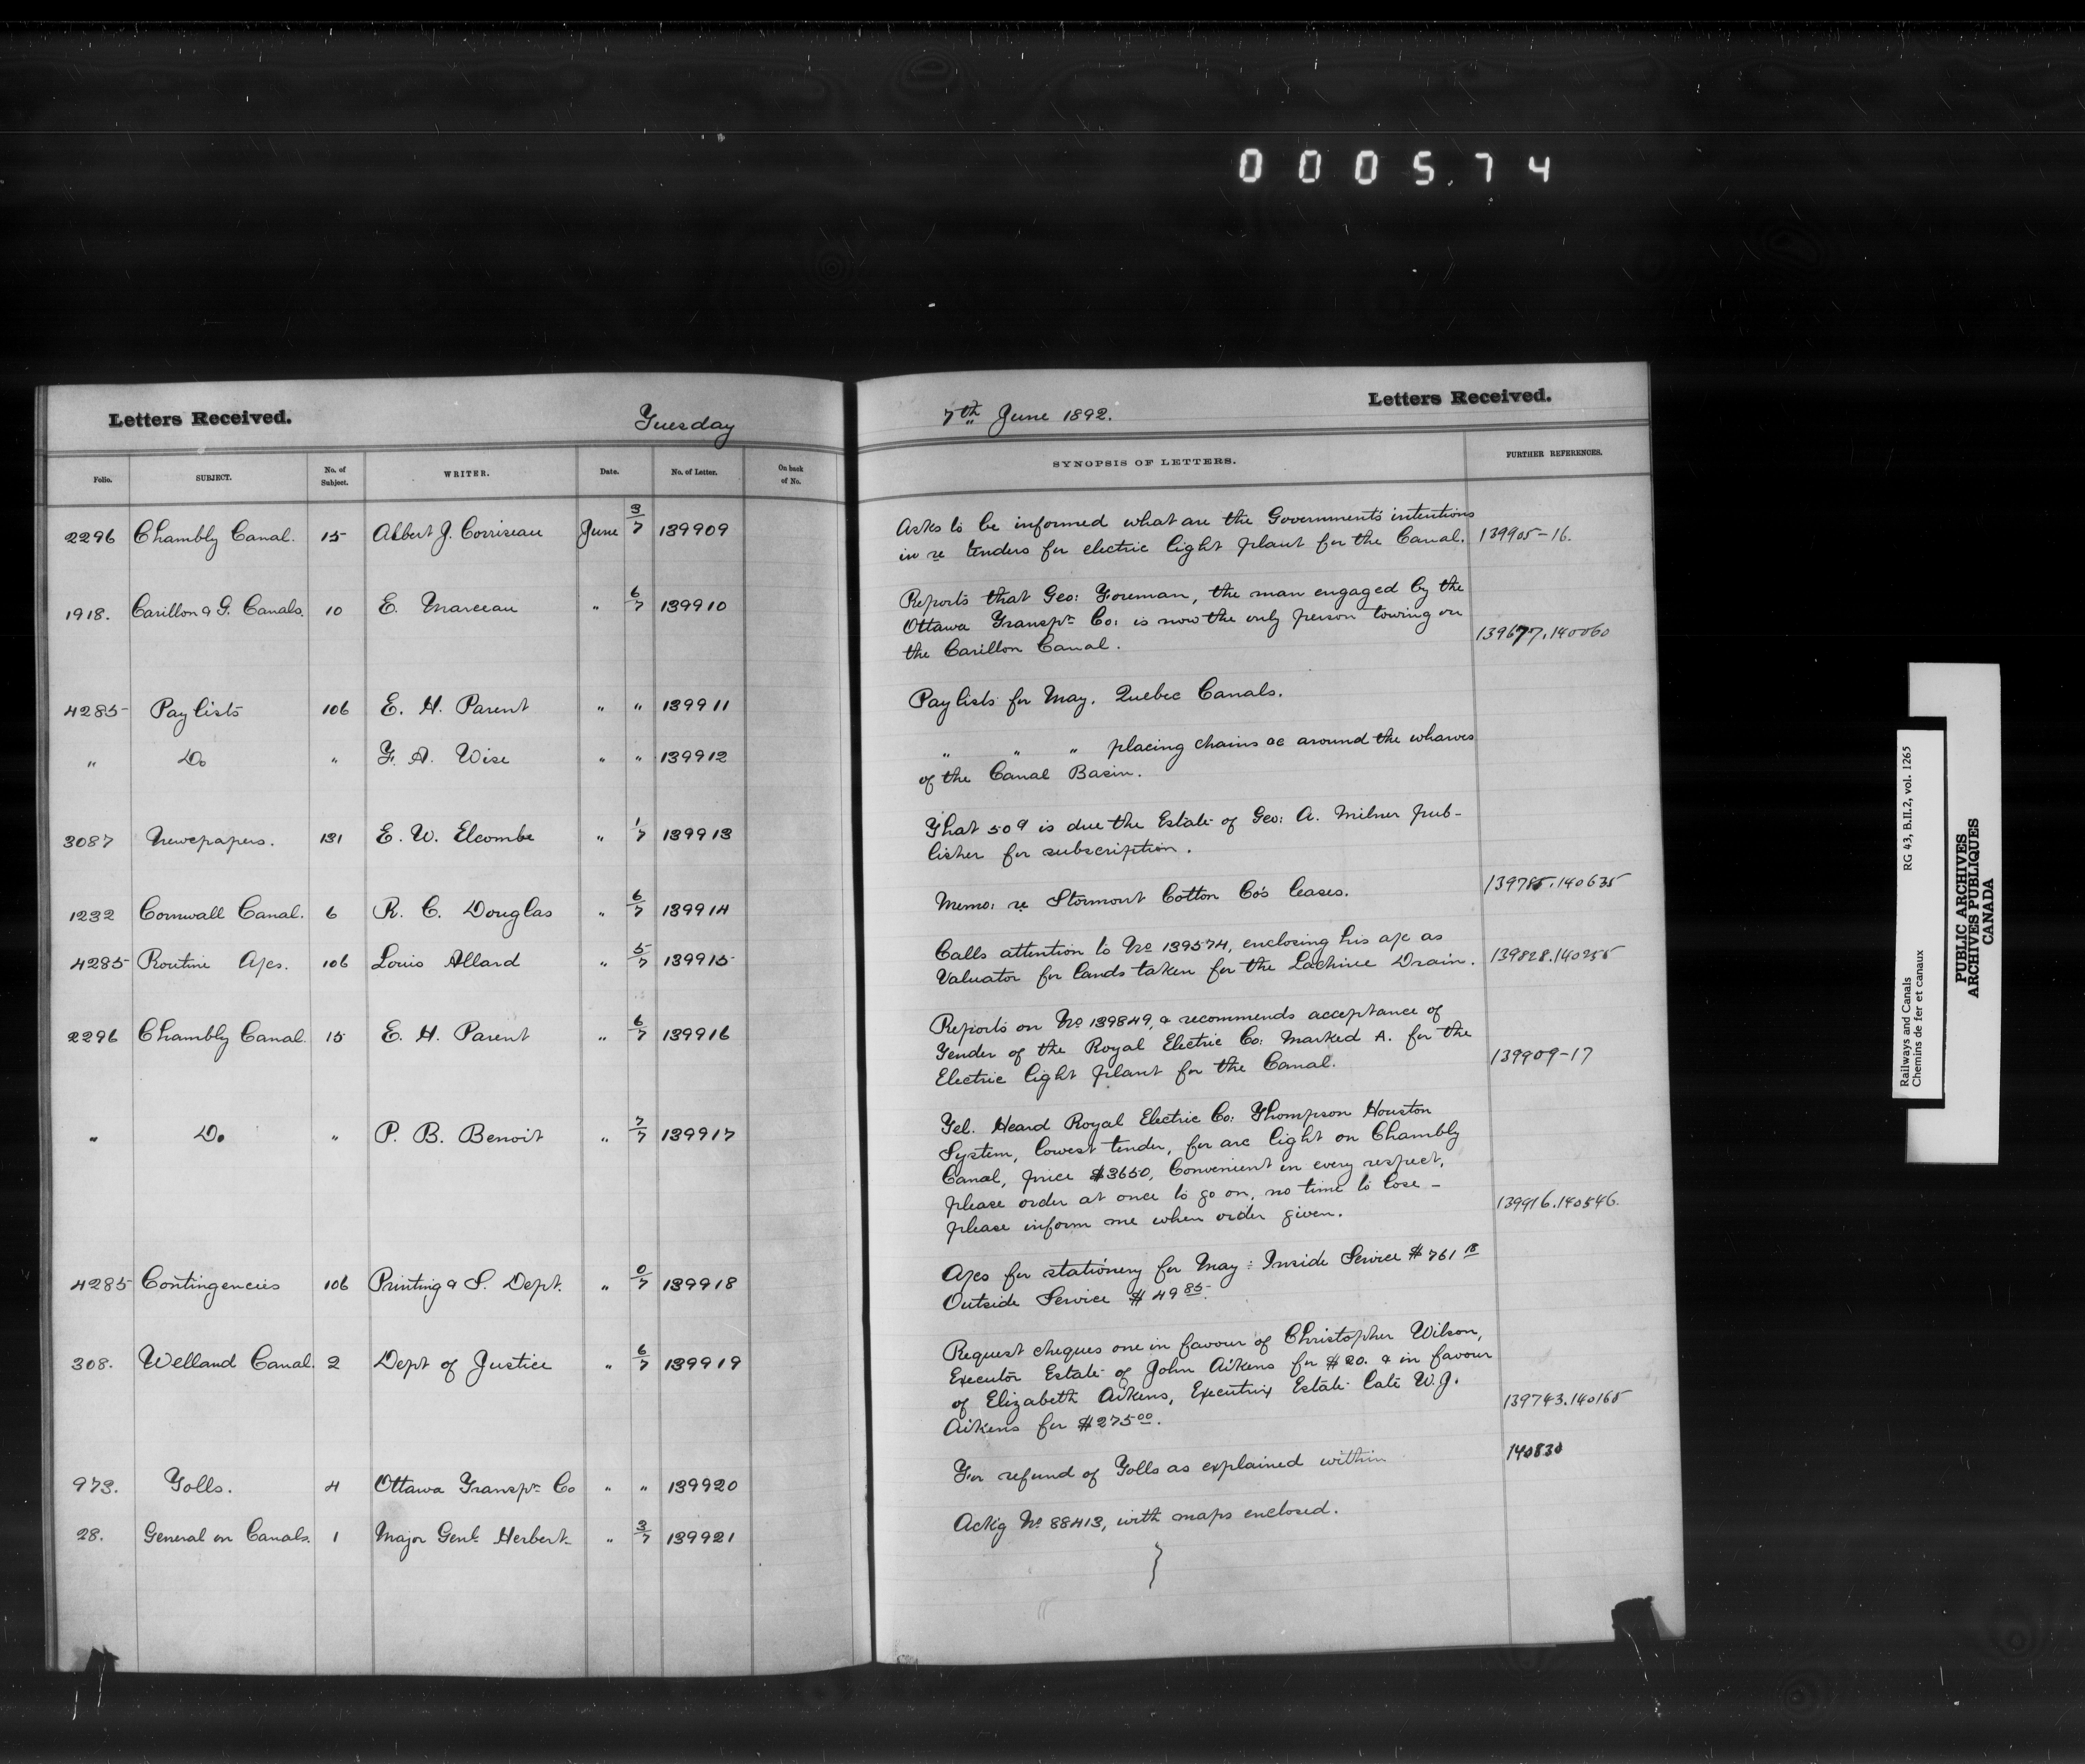 0 0 0 5. 7 4
Letters Received.
Tuesday
7th June 1892.
Letters Received.
Folio. SUBJECT. No. of Subject. WRITER. Date. No. of Letter. On back of No. SYNOPSIS OF LETTERS. FURTHER REFERENCES.
2296 Chambly Canal. 15 Albert J. Corriseau June 3/7 139909
Asks to be informed what are the Governments' intentions
in re tenders for electric light plant for the Canal. 139905-16.
1918. Carillon & G. Canals. 10 E. Marceau " 6/7 139910
Reports that Geo: Foreman, the man engaged by the
Ottawa Transpn Co: is now the only person towing on
the Carillon Canal. 139677.140060
4285 Pay lists 106 E. H. Parent " " 139911
Pay lists for May. Quebec Canals.
" Do " F. A. Wise " " 139912
" " " placing chains &c around the wharves
of the Canal Basin.
3087 Newspapers. 131 E. W. Elcombe " 1/7 139913
That 50¢ is due the Estate of Geo: A. Milner pub-
lisher for subscription.
1232 Cornwall Canal. 6 R. C. Douglas " 6/7 139914
Memo: re Stormont Cotton Co's leases. 139785.140635
4285 Routine A/cs. 106 Louis Allard " 5/7 139915
Calls attention to No 139574, enclosing his a/c as
Valuator for lands taken for the Lachine Drain. 139828.140255
2296 Chambly Canal. 15 E. H. Parent " 6/7 139916
Reports on No 139849, & recommends acceptance of
Tender of the Royal Electric Co: marked A. for the
Electric light plant for the Canal. 139909-17
" Do " P. B. Benoit " 7/7 139917
Tel. Heard Royal Electric Co: Thompson Houston
System, lowest tender, for arc light on Chambly
Canal, price $3650, Convenient in every respect,
please order at once to go on, no time to lose -
please inform me when order given. 139916.140546.
4285 Contingencies 106 Printing & S. Dept. " 0/7 139918
A/cs for stationery for May: Inside Service $761 18
Outside Service $49 85.
308. Welland Canal. 2 Dept of Justice " 6/7 139919
Request cheques one in favour of Christopher Wilson,
Executor Estate of John Aikens for $20. & in favour
of Elizabeth Aikens, Executrix Estate late W. J.
Aikens for $275 00. 139743.140165
973. Tolls. 4 Ottawa Transpn Co " " 139920
For refund of Tolls as explained within 140830
28. General on Canals. 1 Major Genl. Herbert. " 3/7 139921
Ackg No 88413, with maps enclosed.
Railways and Canals RG 43, B.II.2, vol. 1265
Chemins de fer et canaux
PUBLIC ARCHIVES
ARCHIVES PUBLIQUES
CANADA